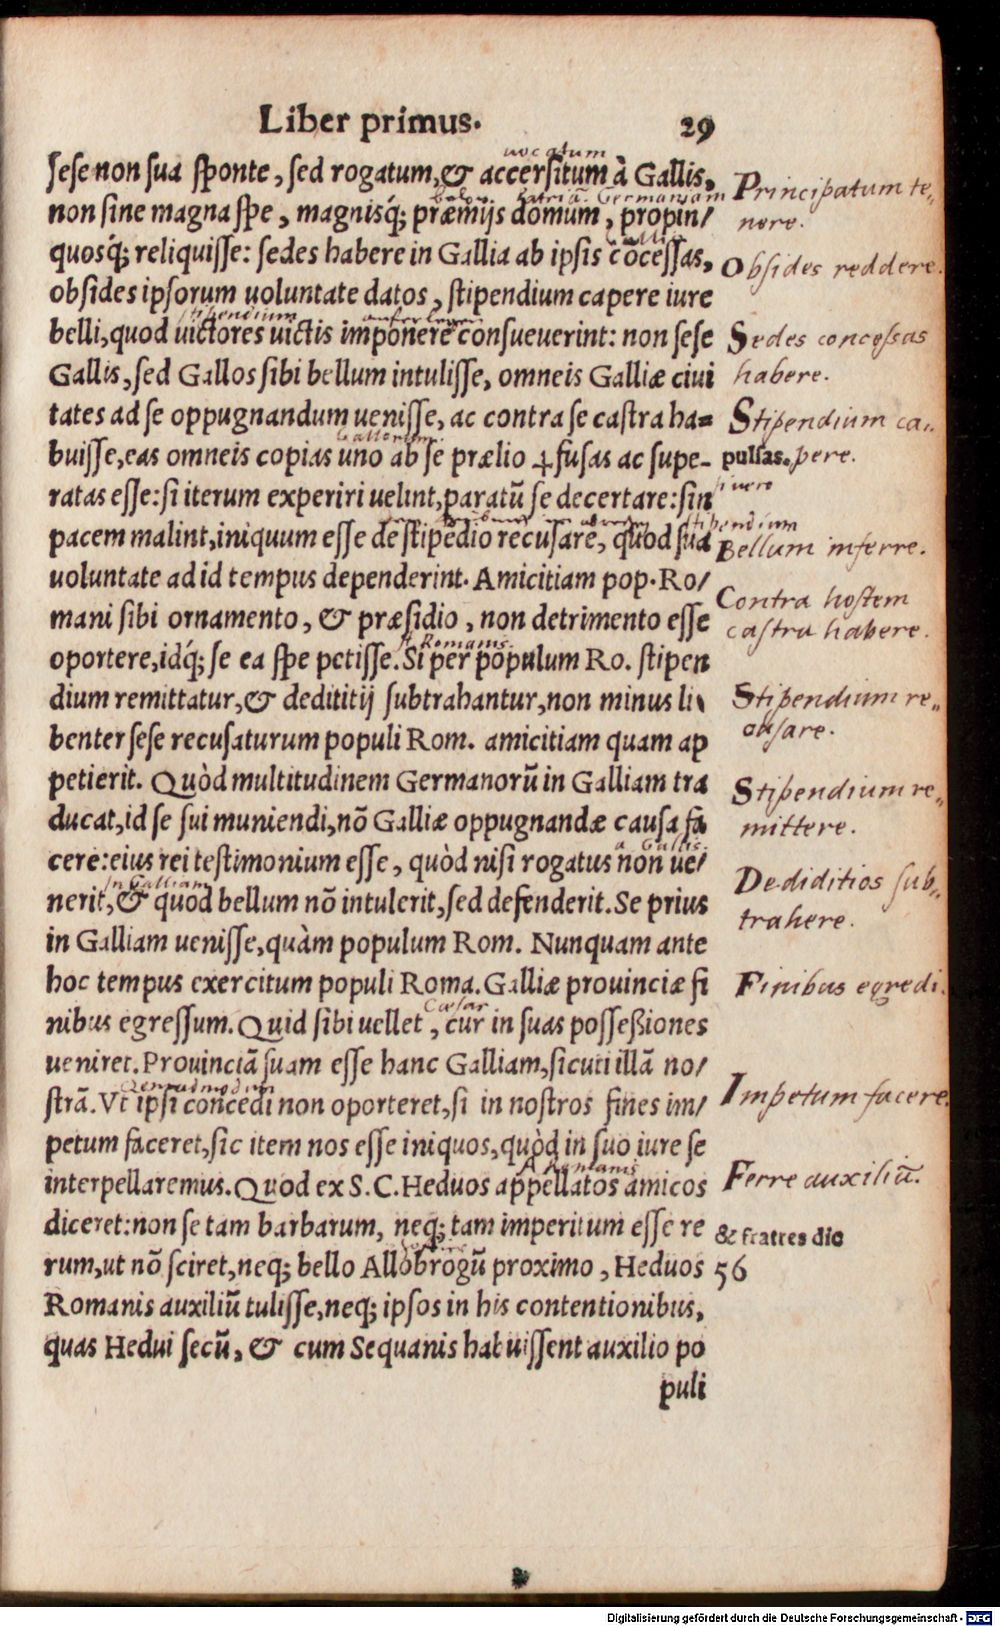 Liber primus. 29
uocatum
sese non sua sponte, sed rogatum, & accersitum à Gallis,
patriā. Germaniam
non sine magna spe, magnisq́; præmijs domum, propin/
Gallis
quosq́; reliquisse: sedes habere in Gallia ab ipsis cōcessas,
obsides ipsorum uoluntate datos, stipendium capere iure
stipendium
belli, quod uictores uictis imponere consueuerint: non sese
Gallis, sed Gallos sibi bellum intulisse, omneis Galliæ ciui
tates ad se oppugnandum uenisse, ac contra se castra ha=
Gallorum
buisse, eas omneis copias uno ab se prælio ☩ fusas ac supe-
ratas esse: si iterum experiri uelint, paratū se decertare: sin
pacem malint, iniquum esse de stipēdio recusare, quod sua
uoluntate ad id tempus dependerint. Amicitiam pop. Ro/
mani sibi ornamento, & præsidio, non detrimento esse
oportere, idq́; se ea spe petisse. Si per populum Ro. stipen
à Romanis.
dium remittatur, & dedititij subtrahantur, non minus li
benter sese recusaturum populi Rom. amicitiam quam ap
petierit. Quòd multitudinem Germanorū in Galliam tra
ducat, id se sui muniendi, nō Galliæ oppugnandæ causa fa
a Gallis.
cere: eius rei testimonium esse, quòd nisi rogatus non ue/
in Galliam
nerit, & quod bellum nō intulerit, sed defenderit. Se prius
in Galliam uenisse, quàm populum Rom. Nunquam ante
hoc tempus exercitum populi Roma. Galliæ prouinciæ fi
Cæsar
nibus egressum. Quid sibi uellet, cur in suas posseßiones
ueniret. Prouinciā suam esse hanc Galliam, sicuti illā no/
Qemadmodum
strā. Vt ipsi concedi non oporteret, si in nostros fines im/
petum faceret, sic item nos esse iniquos, quòd in suo iure se
A Romanis
interpellaremus. Quod ex S. C. Heduos appellatos amicos
diceret: non se tam barbarum, neq; tam imperitum esse re
rum, ut nō sciret, neq; bello Allobrogū proximo, Heduos
Romanis auxiliū tulisse, neq; ipsos in his contentionibus,
quas Hedui secū, & cum Sequanis habuissent auxilio po
puli
Principatum te„
nere.
Obsides reddere.
Sedes concessas
habere.
Stipendium ca„
pulsas. pere.
si uero
stipendium
Bellum inferre.
Contra hostem
castra habere.
Stipendium re„
cusare.
Stipendium re„
mittere.
Dediditios sub„
trahere.
Finibus egredi.
Impetum facere.
Ferre auxiliū.
& fratres dic
56
Digitalisierung gefördert durch die Deutsche Forschungsgemeinschaft - DFG